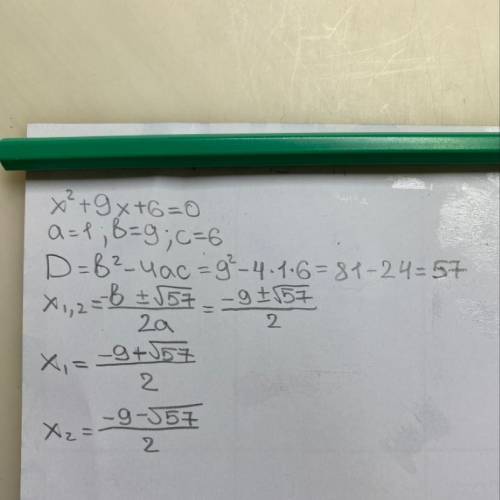 x²+9x+6=0
a=1; b=9; c=6
D=b²-4ac=9²-4·1·6=81-24=57
x₁,₂=(-b±√57)/2a=(-9±√57)/2
x₁=(-9+√57)/2
x₂=(-9-√57)/2